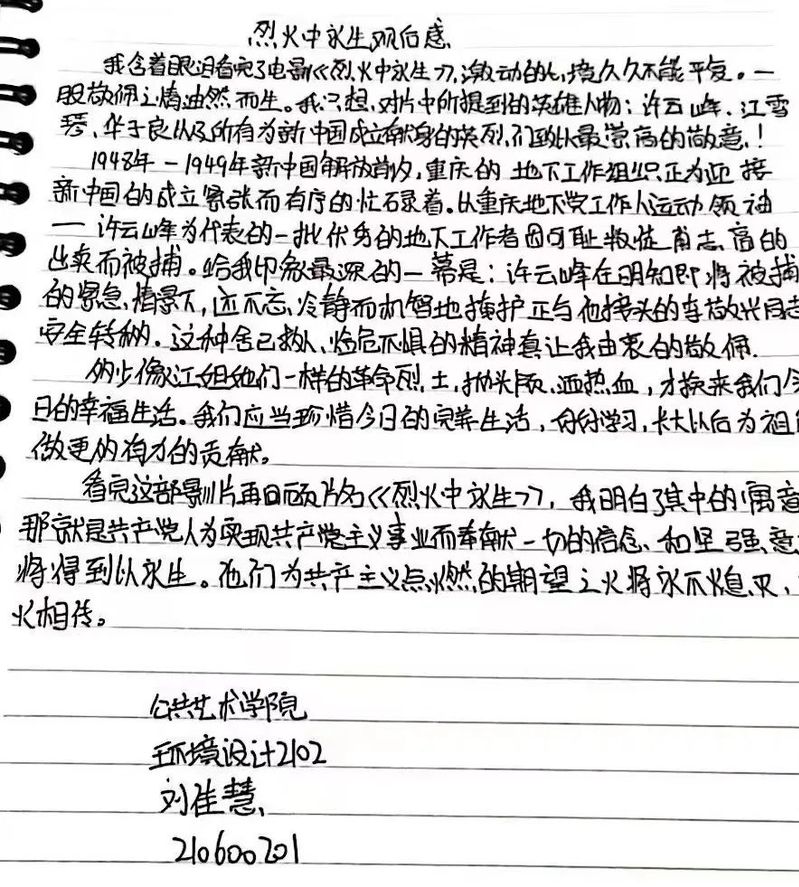 烈火中永生观后感
我含着眼泪看完了电影《烈火中永生》,激动的心境久久不能平复。一
股敬佩之情油然而生。我只想对片中所提到的英雄人物:许云峰、江雪
琴、华子良以及所有为新中国成立献身的英烈们致以最崇高的敬意!
1948年-1949年新中国解放前夕,重庆的地下工作组织正为迎接
新中国的成立紧张而有序的忙碌着。从重庆地下党工作人运动领袖
——许云峰为代表的一批优秀的地下工作者因可耻叛徒甫志高的
出卖而被捕。给我印象最深的一幕是:许云峰在明知即将被捕
的紧急情景下,还不忘冷静而机智地掩护正与他接头的李敬兴同志
安全转移。这种舍已救人、临危不惧的精神真让我由衷的敬佩.
多少像江姐她们一样的革命烈士,抛头颅、洒热血,才换来我们今
日的幸福生活。我们应当珍惜今日的完美生活,好好学习,长大以后为祖
做更多有力的贡献。
看完这部影片再回顾片名《烈火中永生》,我明白了其中的寓意
那就是共产党人为实现共产党主义事业而奉献一切的信念、和坚强意
将得到以永生。他们为共产主义点燃的期望之火将永不熄灭,
火相传。
公共艺术学院
环境设计2102
刘佳慧
210600201